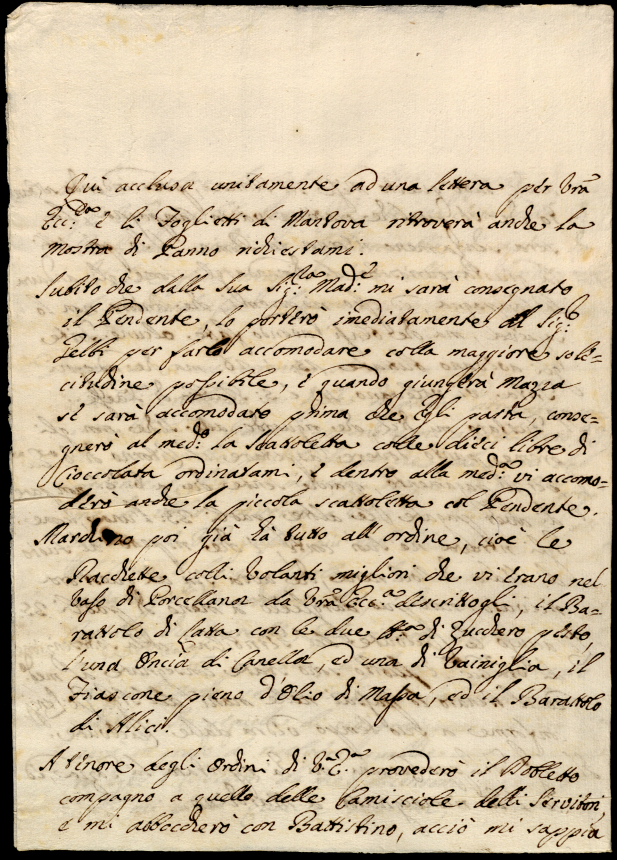 Qui acclusa unitamente ad una lettera per Vrã
Ecc:ᶻᵃ e li Foglietti di Mantova ritroverà anche la
mostra di Panno richiestami.
Subito che dalla Sua Sig:ʳᵃ Mad:ᵉ mi sarà consegnato
il Pendente, lo porterò imediatamente al Sig:ʳ
per farlo accomodare colla maggiore sole-
citudine possibile, e quando giungerà Mazza
se sarà accomodato prima che Egli parta, conse-
gnerò al med:ᵒ la Scattoletta colle dieci libre di
Cioccolata ordinatami, e dentro alla med:ᵃ vi accomo-
derò anche la piccola scattoletta col Pendente.
Mardino poi già hà tutto all'ordine, cioè le
Racchette colli Volanti migliori che vi erano nel
Vaso di Porcellana da Vrã Ecc:ᵃ descrittogli, il Ba-
rattolo di Latta con le due di Zucchero pesto,
l'una Oncia di Canella, ed una di Vainiglia, il
Fiascone pieno d'Olio di Massa, ed il Barattolo
di Alici.
A tenore degli Ordini di V:ᵃ E:ᵃ provederò il Dobletto
compagno a quello delle Camisciole delli Servitori,
e mi abboccherò con Battistino, acciò mi sappia